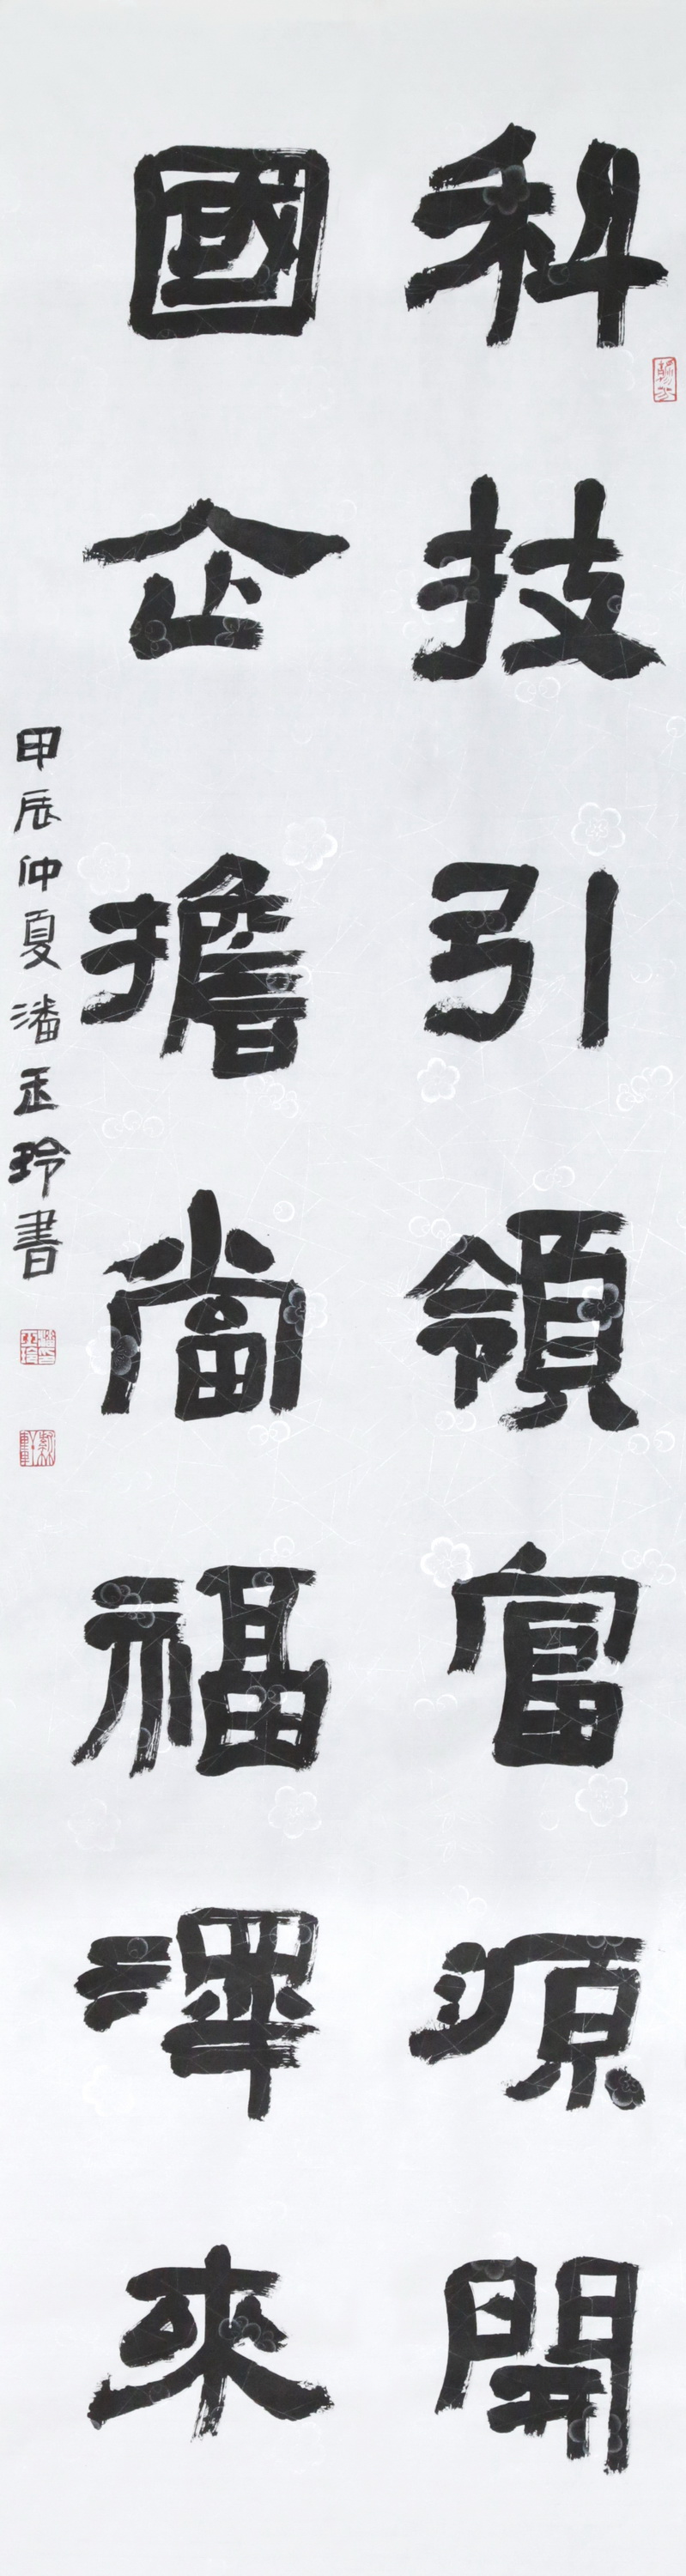 科技引領富源開
國企擔當福澤來
甲辰仲夏潘玉玲書